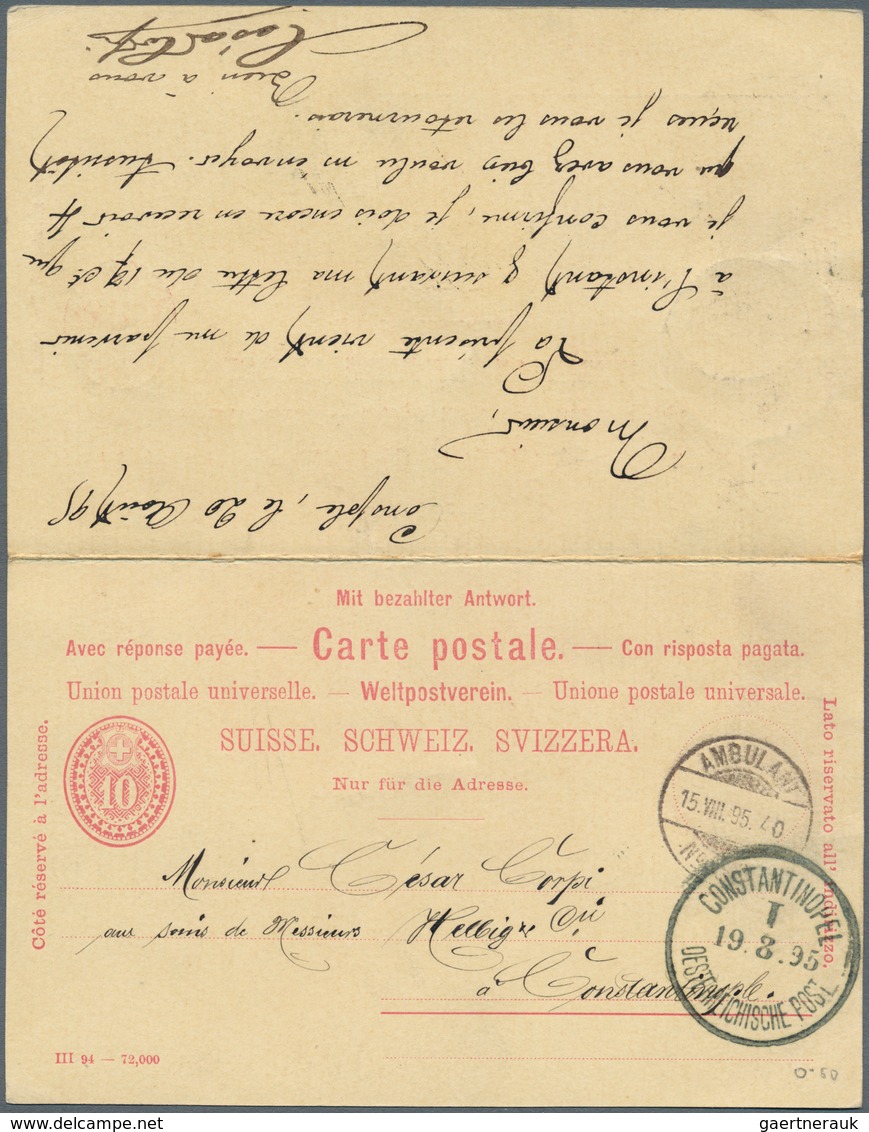 Constple, le 20 Août 95
Monsieur,
La présente vient de me parvenir
à l'instant & suivant ma lettre du 17 ct que
je vous confirme, je dois encore en recevoir 4
que vous avez bien voulu m'envoyer. Aussitôt
reçues je vous les retournerai.
Bien à vous
César Corpi
Mit bezahlter Antwort.
Avec réponse payée. — Carte postale. — Con risposta pagata.
Union postale universelle. — Weltpostverein. — Unione postale universale.
SUISSE. SCHWEIZ. SVIZZERA.
Nur für die Adresse.
Côté réservé à l'adresse.
Lato riservato all' indirizzo.
10
AMBULANT
15.VIII.95.
No
CONSTANTINOPEL
I
19.8.95
OESTERREICHISCHE POST
Monsieur César Corpi
aux soins de Messieurs Helbig &
à Constantinople.
III 94 — 72,000
0-50
gaertnerauk